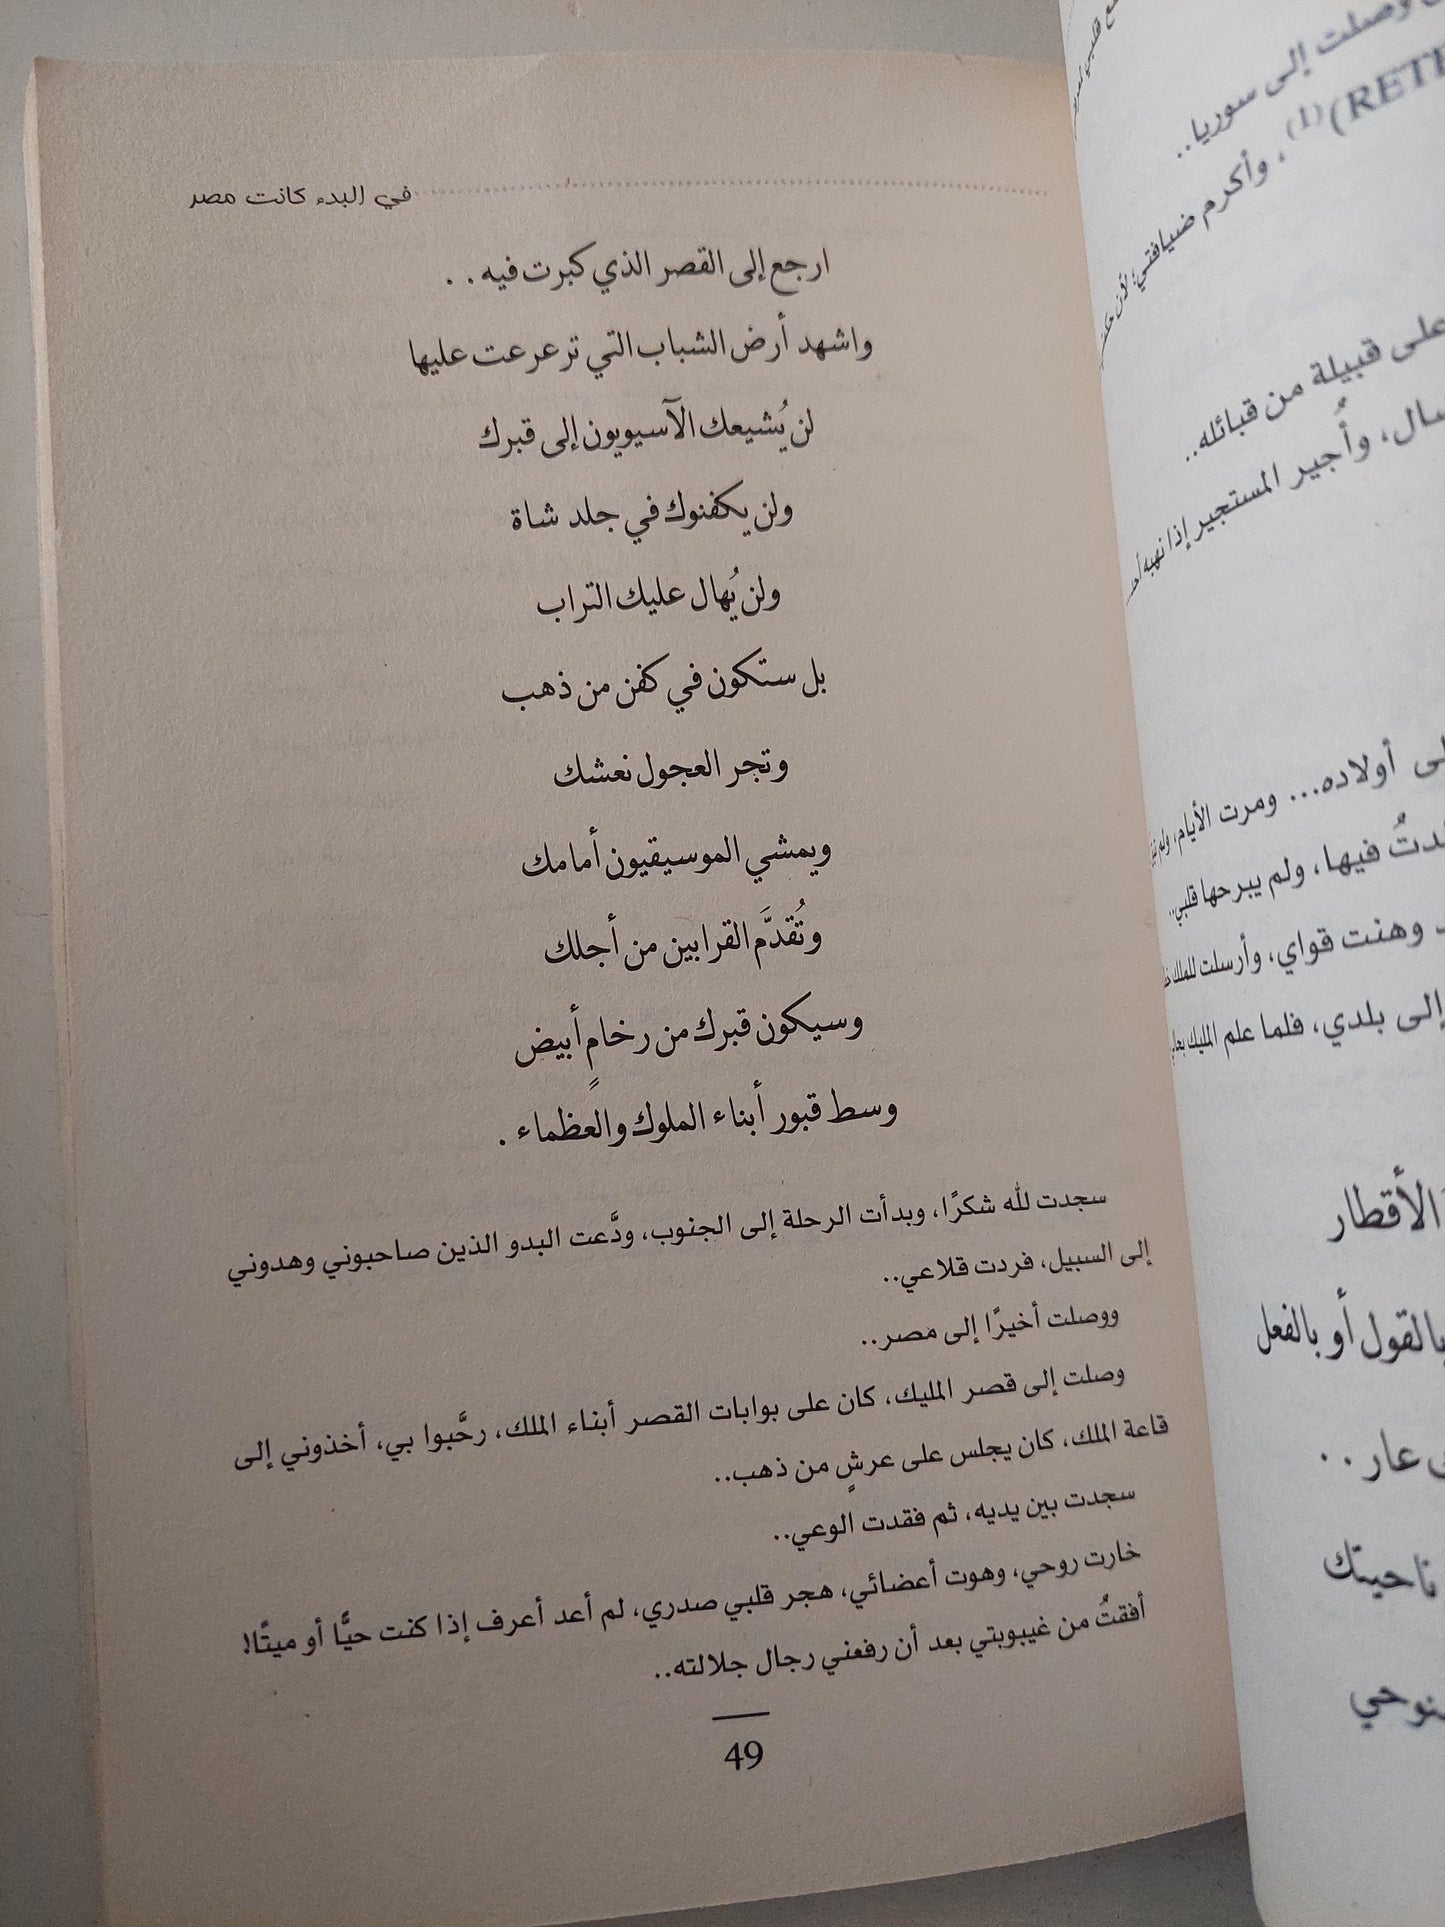 في البدء كانت مصر
ارجع إلى القصر الذي كبرت فيه . .
واشهد أرض الشباب التي ترعرعت عليها
لن يُشيعك الآسيويون إلى قبرك
ولن يكفنوك في جلد شاة
ولن يُهال عليك التراب
بل ستكون في كفن من ذهب
وتجر العجول نعشك
ويمشي الموسيقيون أمامك
وتُقدَّم القرابين من أجلك
وسيكون قبرك من رخامٍ أبيض
وسط قبور أبناء الملوك والعظماء .
سجدت لله شكرًا، وبدأت الرحلة إلى الجنوب، ودَّعت البدو الذين صاحبوني وهدوني
إلى السبيل، فردت قلاعي..
ووصلت أخيرًا إلى مصر..
وصلت إلى قصر المليك، كان على بوابات القصر أبناء الملك، رحَّبوا بي، أخذوني إلى
قاعة الملك، كان يجلس على عرشٍ من ذهب..
سجدت بين يديه، ثم فقدت الوعي..
خارت روحي، وهوت أعضائي، هجر قلبي صدري، لم أعد أعرف إذا كنت حيًّا أو ميتًا!
أفقتُ من غيبوبتي بعد أن رفعني رجال جلالته..
49
وصلت إلى سوريا..
(1)، وأكرم ضيافتي؛ لأن
على قبيلة من قبائله..
وأُجير المستجير إذا نهبه
أولاده... ومرت الأيام، ولم
فيها، ولم يبرحها قلبي..
وهنت قواي، وأرسلت للملك
إلى بلدي، فلما علم المليك
الأقطار
بالقول أو بالفعل
عار . .
ناحيتك